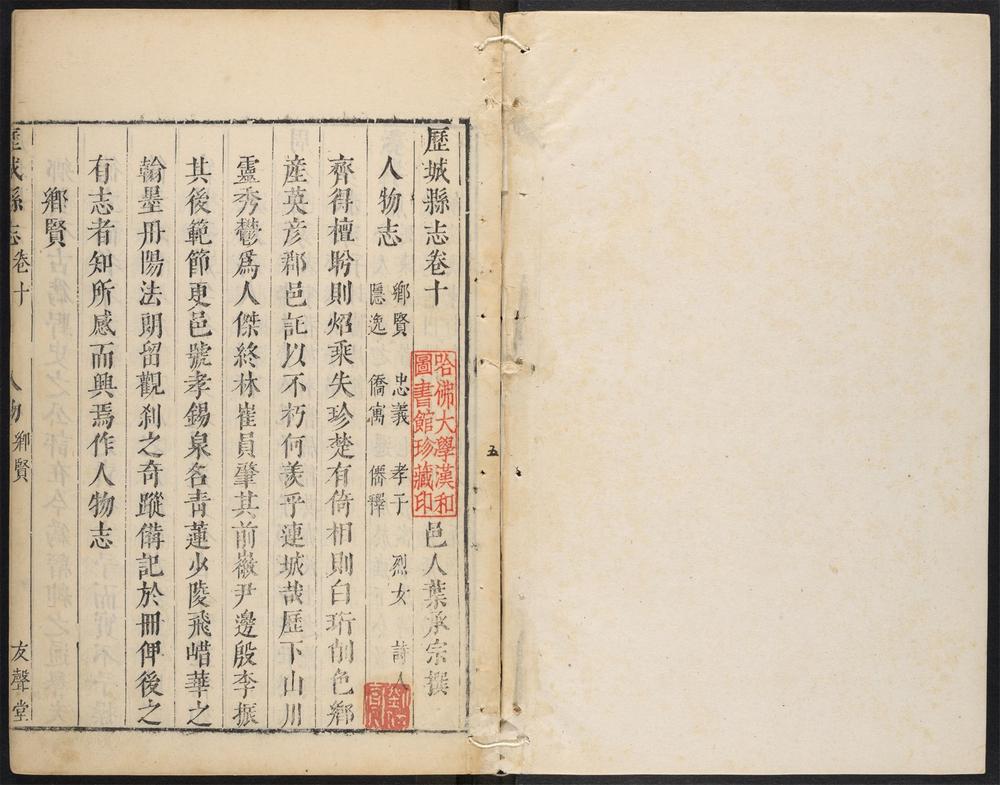 歷城縣志卷十
邑人葉承宗撰
哈佛大學漢和
圖書館珍藏印
人物志 鄉賢 忠義 孝子 烈女 詩人
隱逸 僑寓 僊釋
齊得檀肹則炤乘失珍楚有倚相則白珩削色鄉
產英彥郡邑託以不朽何羡乎連城哉歷下山川
靈秀鬱爲人傑終林崔員肇其前嶶尹邊殷李振
其後範節更邑號孝錫泉名青蓮少陵飛皚華之
翰墨丹陽法朗留觀刹之奇蹤備記於冊俾後之
有志者知所感而興焉作人物志
鄉賢
歷城縣志卷十 人物 鄉賢 友聲堂
五